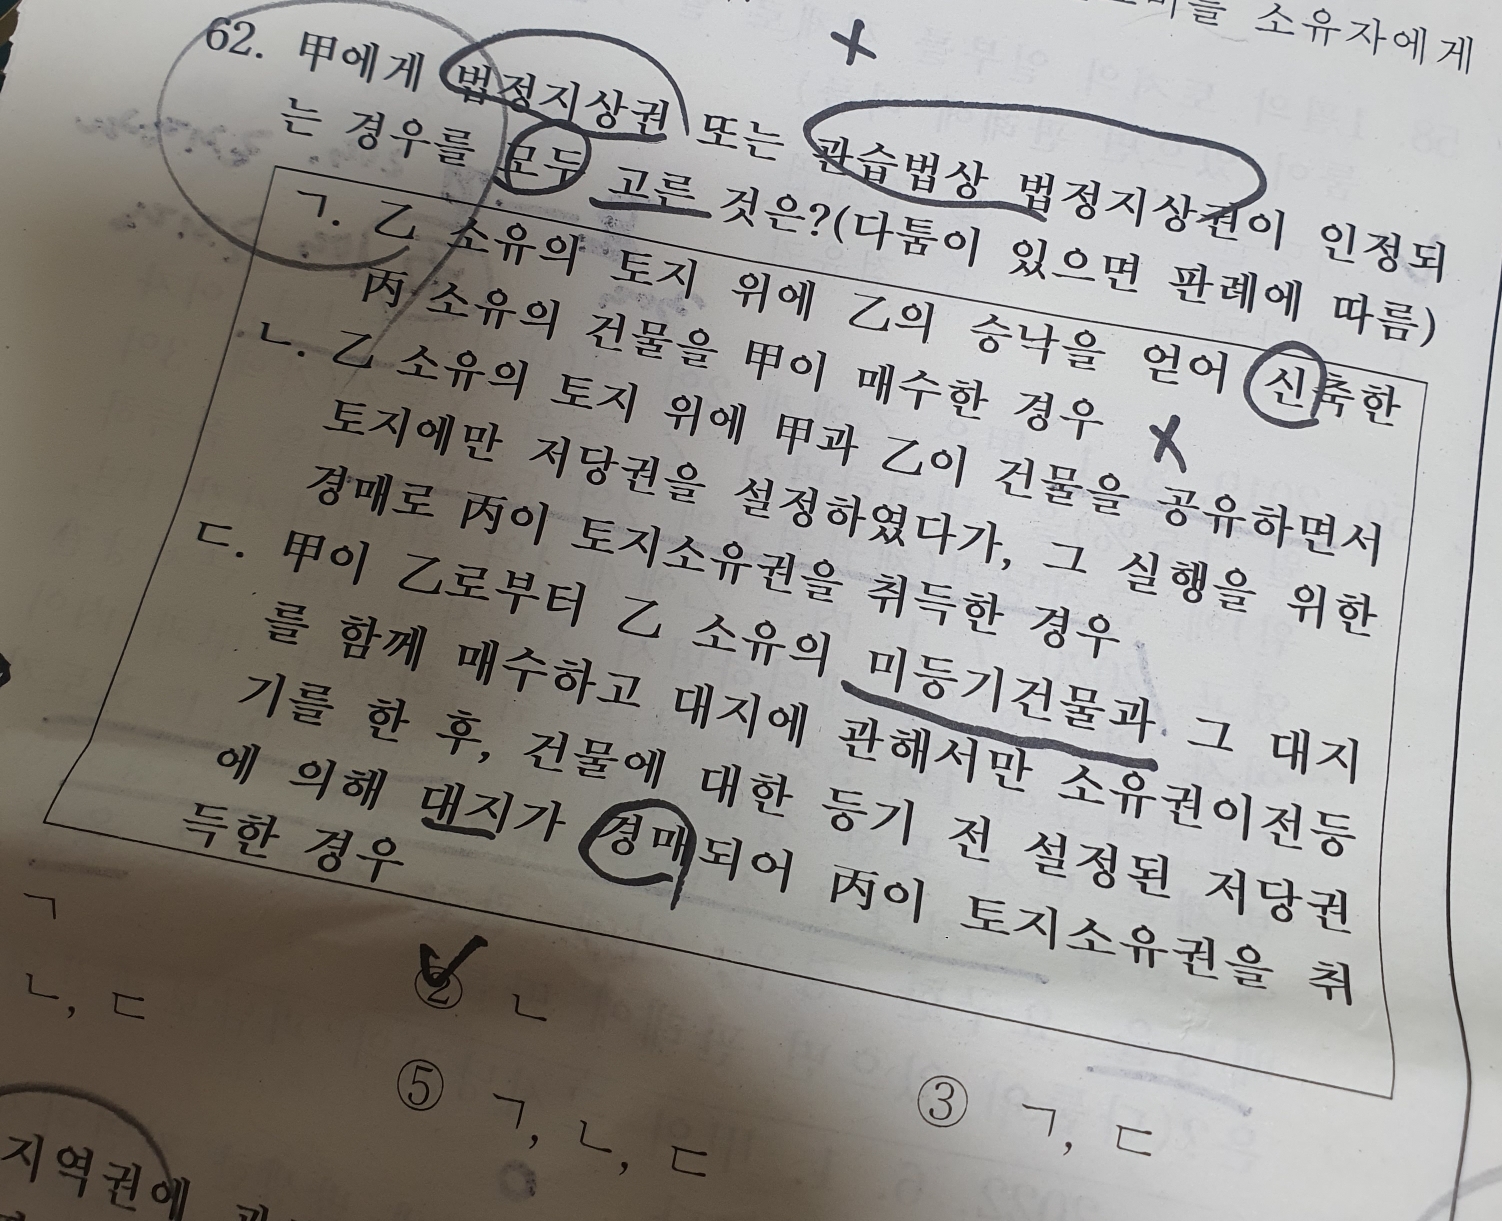 소유자에게
62. 甲에게 법정지상권 또는 관습법상 법정지상권이 인정되
는 경우를 모두 고른 것은?(다툼이 있으면 판례에 따름)
ㄱ. 乙 소유의 토지 위에 乙의 승낙을 얻어 신축한
丙 소유의 건물을 甲이 매수한 경우
ㄴ. 乙 소유의 토지 위에 甲과 乙이 건물을 공유하면서
토지에만 저당권을 설정하였다가, 그 실행을 위한
경매로 丙이 토지소유권을 취득한 경우
ㄷ. 甲이 乙로부터 乙 소유의 미등기건물과 그 대지
를 함께 매수하고 대지에 관해서만 소유권이전등
기를 한 후, 건물에 대한 등기 전 설정된 저당권
에 의해 대지가 경매되어 丙이 토지소유권을 취
득한 경우
ㄱ
② ㄴ
③ ㄱ, ㄷ
ㄴ, ㄷ
⑤ ㄱ, ㄴ, ㄷ
지역권에